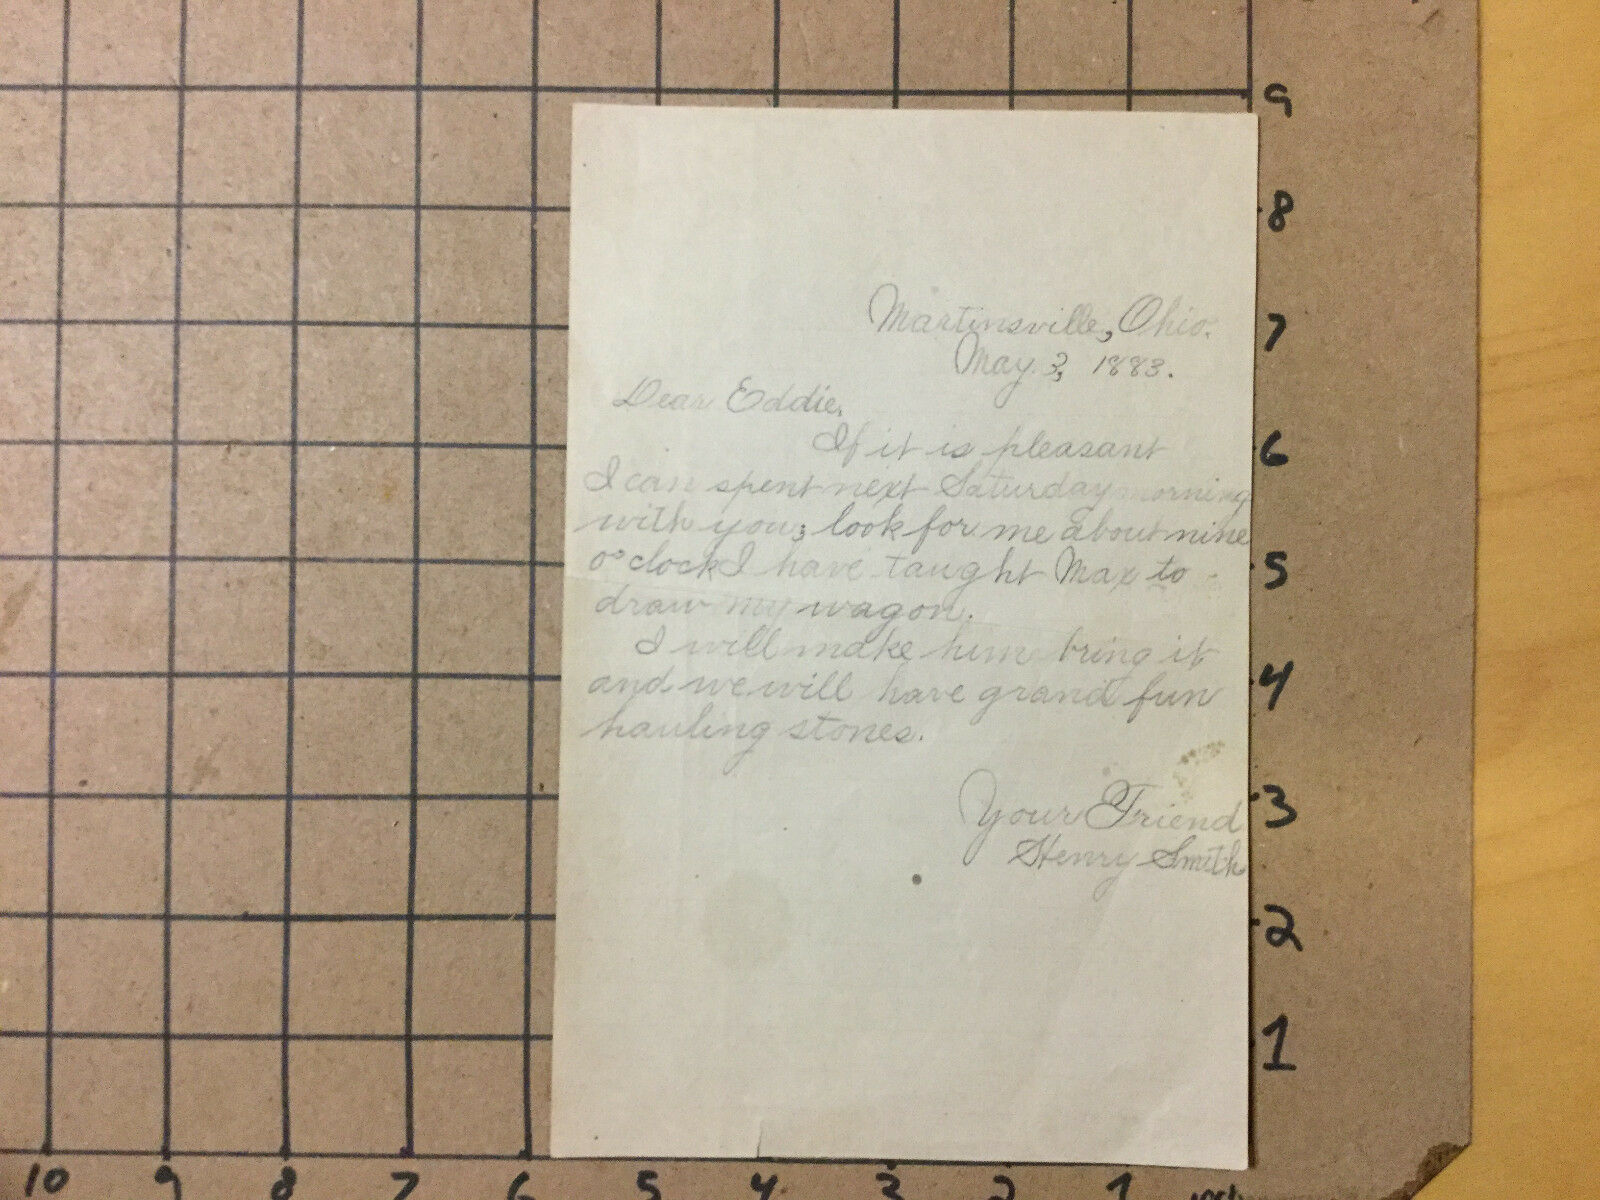 Martinsville, Ohio.
May 3, 1883.
Dear Eddie,
If it is pleasant
I can spent next Saturday morning
with you; look for me about nine
o'clock I have taught Max to
draw my wagon.
I will make him bring it
and we will have grand fun
hauling stones.
Your Friend
Henry Smith
9
8
7
6
5
4
3
2
1
10 9 8 7 6 5 4 3 2 1 inch